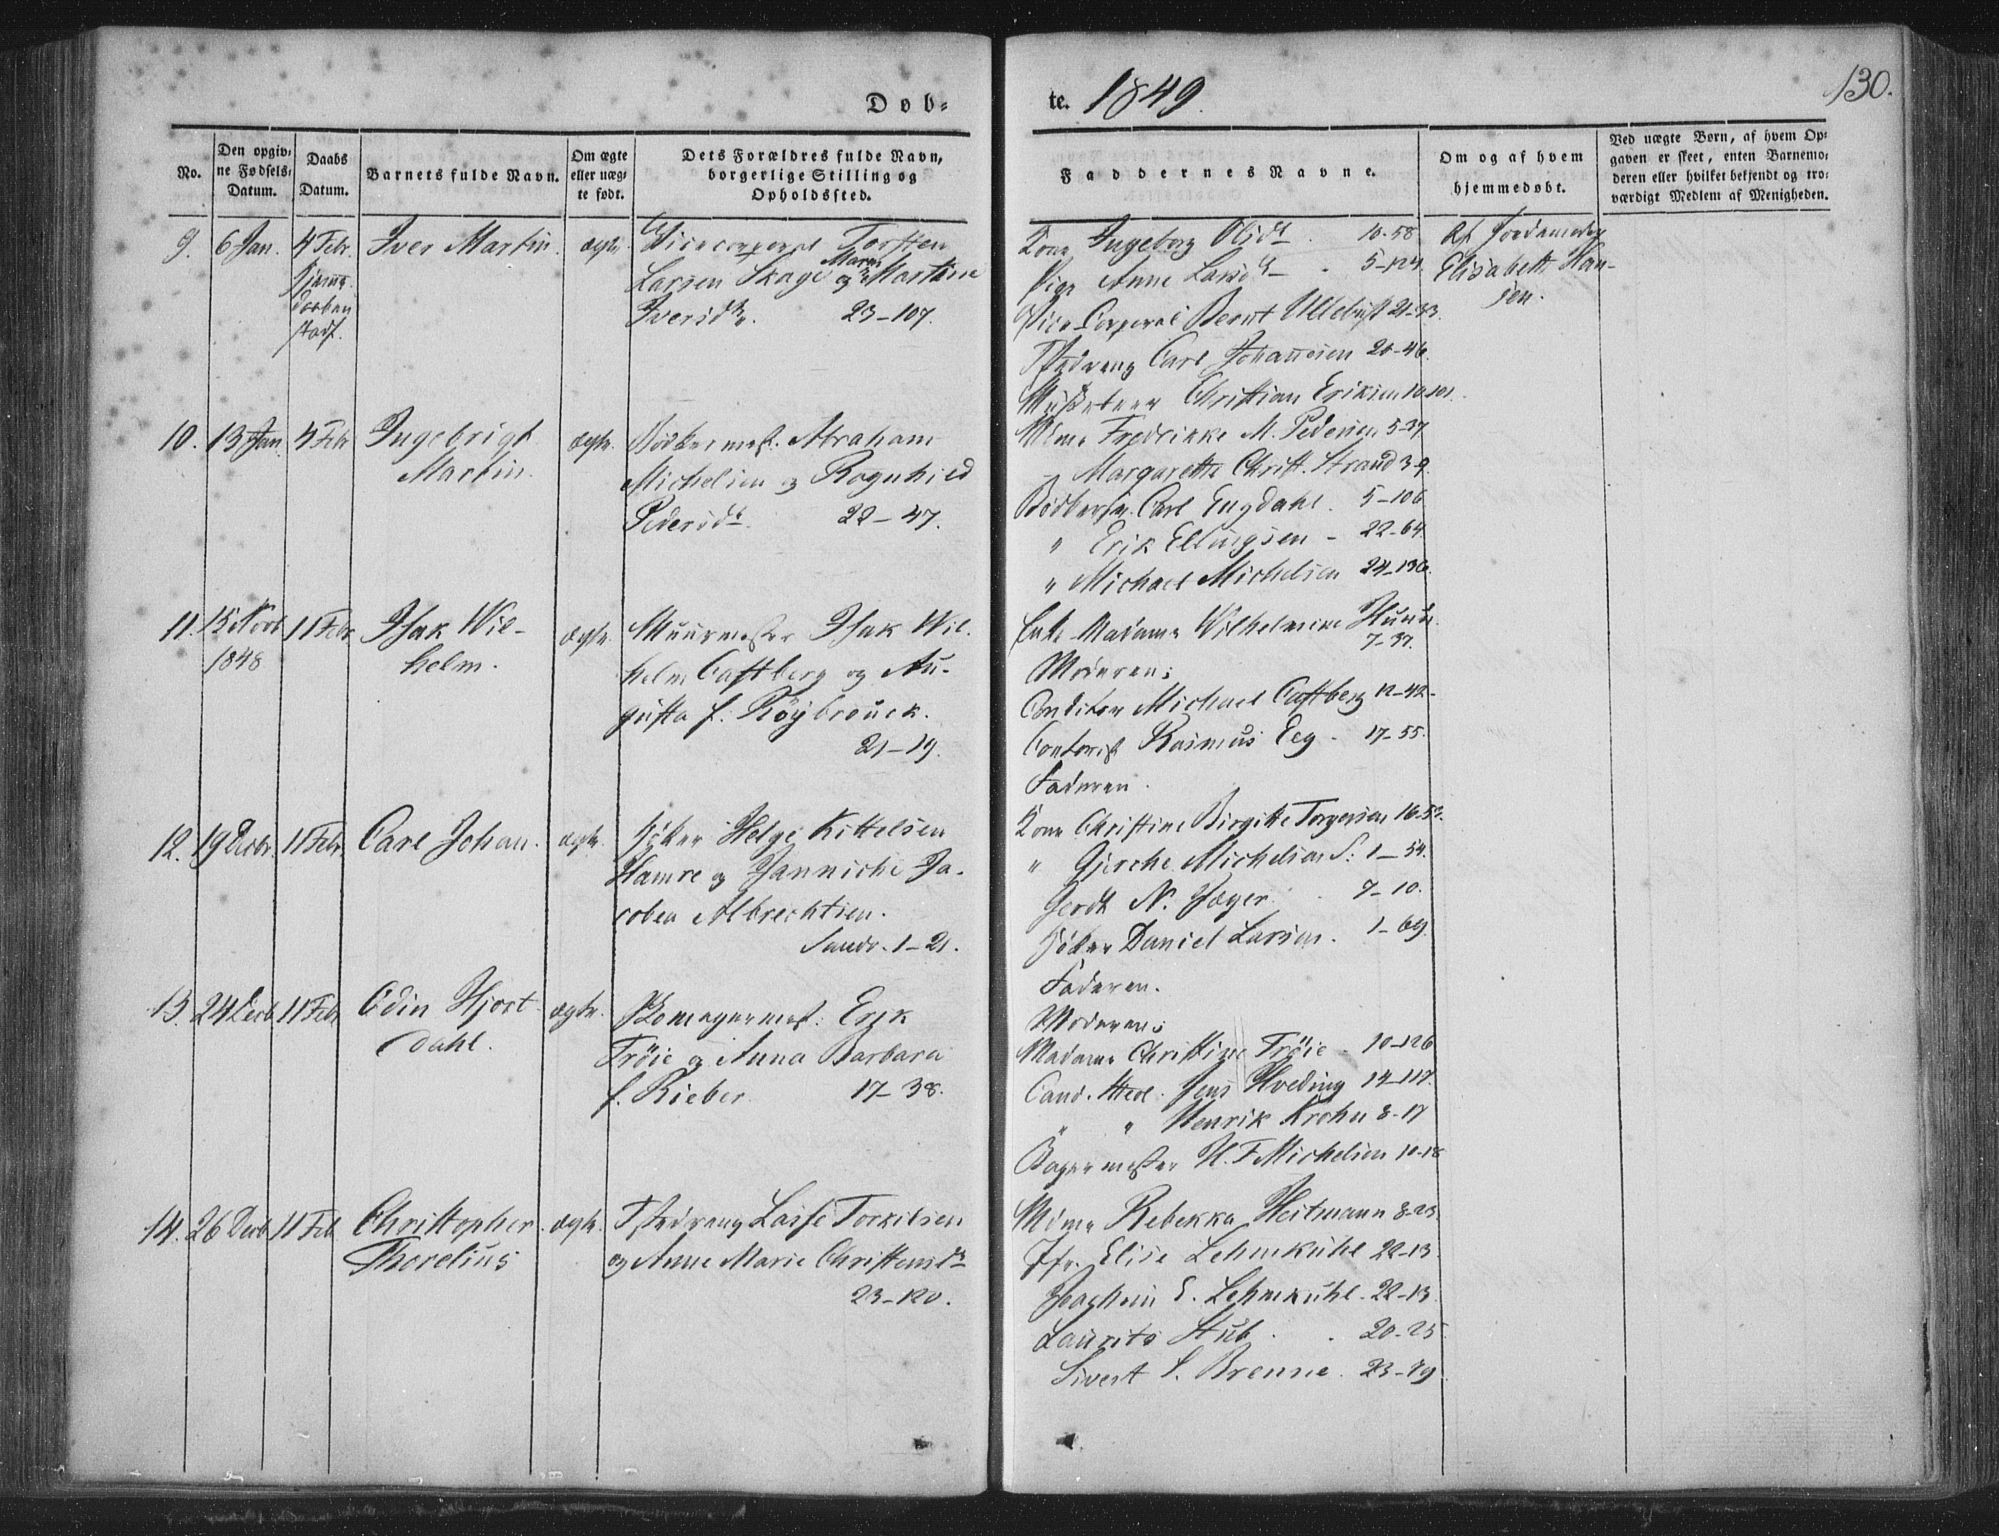 Døb=
te. 1849.
130.
No.
Den opgiv=
ne Fødsels=
Datum.
Daabs
Datum.
Barnets fulde Navn.
Om ægte
eller uæg=
te født.
Dets Forældres fulde Navn,
borgerlige Stilling og
Opholdssted.
Faddernes Navne.
Om og af hvem
hjemmedøbt.
Ved uægte Børn, af hvem Op=
gaven er skeet, enten Barnemo=
deren eller hvilket bekjendt og tro=
værdigt Medlem af Menigheden.
9. 6 Jan. 4 Febr. Iver Martin. ægte.
Vicecorporal Torsten
Larsen Skage og Maren Martine
Iversdtr. 23-107.
Kone Ingeborg Olsdt. 10-58.
Pige Anne Larsdt 5-124.
Vice Corporal Bernt Ullebust 21-73.
Carl Johannesen 20-46.
Christian Eriksen 10-101.
Af Jordemoder
Elisabeth Han-
sen.
10. 13 Jan. 4 Febr. Ingebrigt
Martin.
ægte.
Bødkermest. Abraham
Michelsen og Ragnhild
Pedersdt. 22-47.
Mdme Fredrikke M. Pedersen 5-37
" Margarethe Christ. Strand 3-9.
Bødkersv. Carl Engdahl. 5-106
" Erik Ellingsen - 22-64.
" Michael Michelsen 24-136.
11. 15 Novb.
1848
11 Febr. Isak Wil-
helm.
ægte.
Muurmester Isak Wil.
helm Castberg og Au-
gusta f. Röÿbrouck.
21-19.
Enke Madame Wilhelmine Huun.
7-37.
Moderen;
Conditor Michael Castberg 12-42-
Contorist Rasmus Eeg. 17-55.
Faderen.
12. 19 Decbr. 11 Febr. Carl Johan. ægte.
Høker Helge Kittelsen
Hamre og Janniche Ja-
cobea Albrechtsen.
Sandv. 1-21.
Kone Christine Birgitte Torgersen 16-52.
" Gjerche Michelsen S: 1-54.
Gerdt N. Jæger. 7-10.
Høker Daniel Larsen. 1-69.
Faderen.
13. 24 Decb. 11 Febr. Odin Hjort-
dahl.
ægte.
Skomagermest: Erik
Tröie og Anna Barbara
f. Rieber. 17-38.
Moderen;
Madame Christine Tröie - 10-126
Cand. Med. Jens Hveding 14-117.
" " Henrik Krohn 8-17
Bagermester H. F. Michelsen 10-18
14. 26 Decb. 11 Feb. Christopher
Thorelius
ægte.
Lasse Torkilsen
og Anne Marie Christensdt
23-120.
Mdme Rebekka Heitmann 8-23.
Jfr. Elise Lehmkuhl 22-13.
Joachim E. Lehmkuhl. 22-13.
Laurits Stub. 20-25
Sivert S. Brenne. 23-79